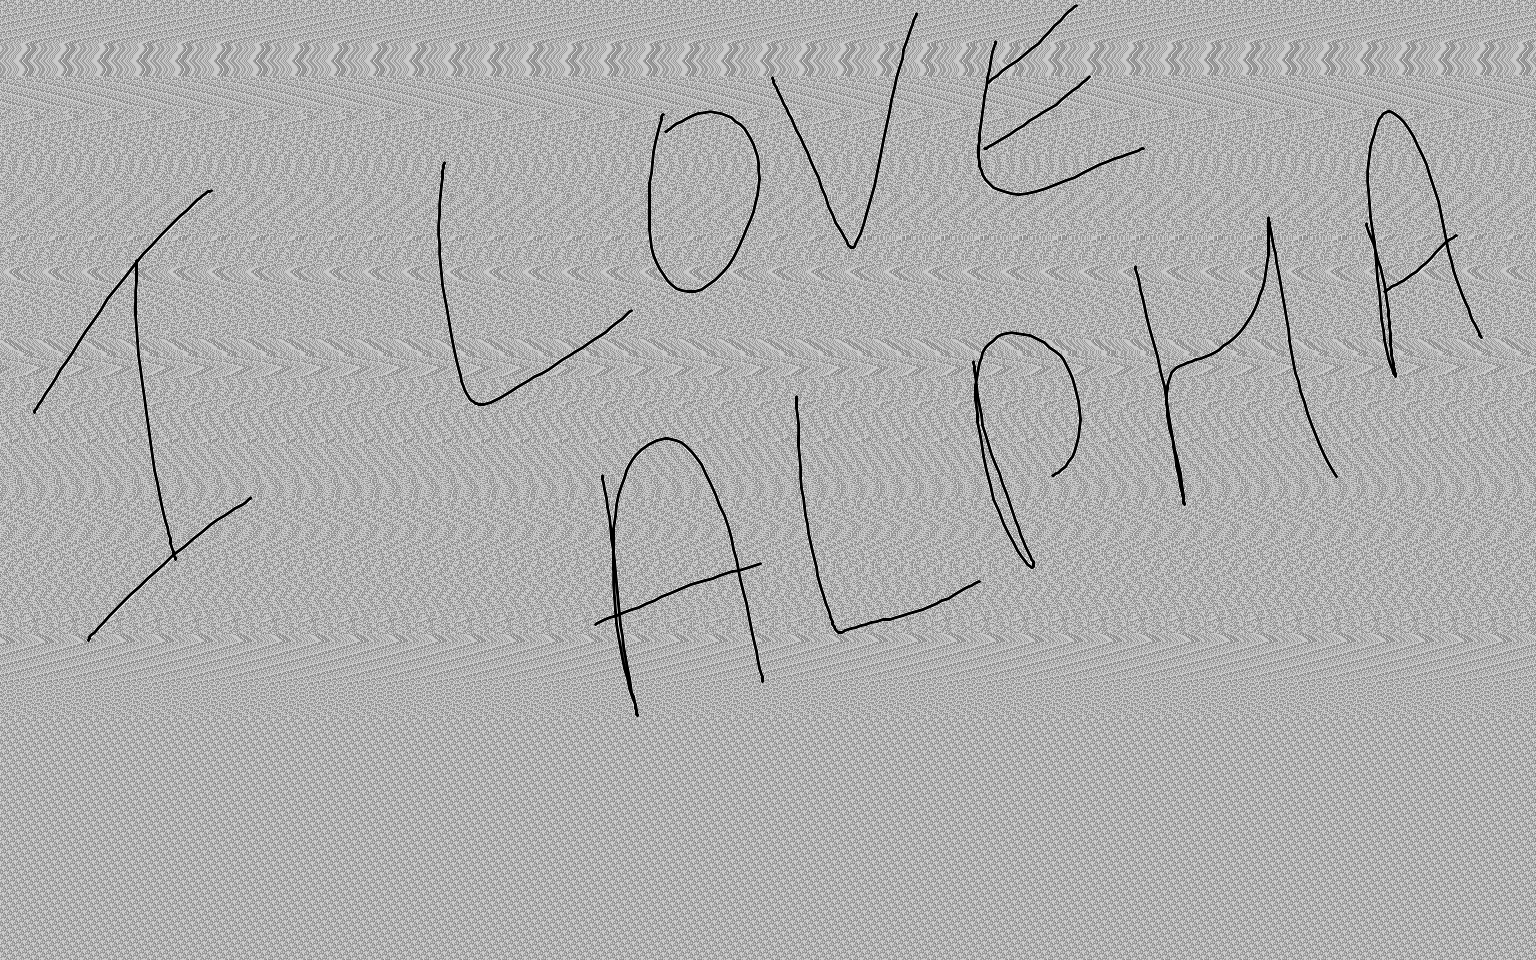 I LOVE
ALPHA